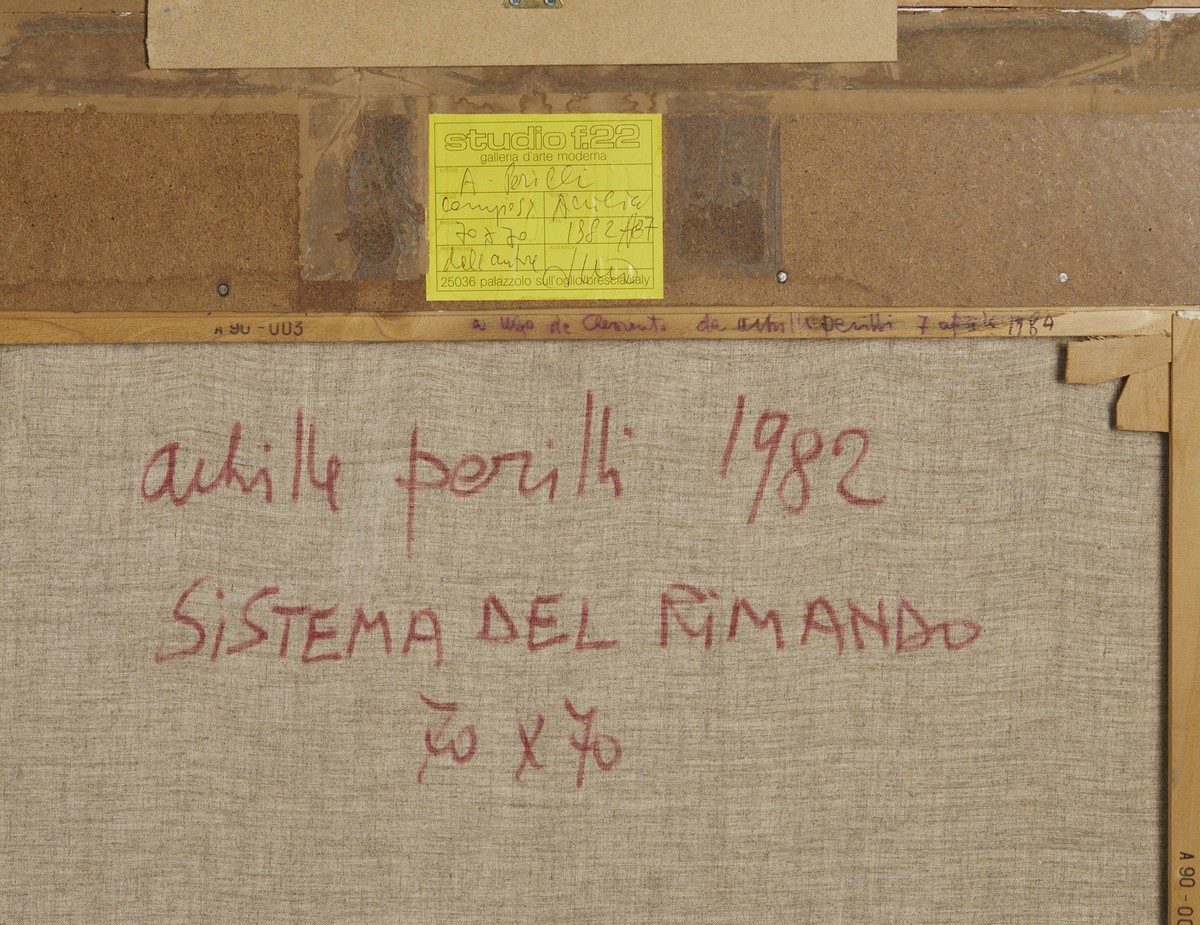 studio f.22
galleria d'arte moderna
A. Perilli
70 x 70 1982
25036 palazzolo sull'oglio/brescia/italy
A 90 - 003
a Ugo de Clemente da achille perilli 7 aprile 1984
achille perilli 1982
SiSTEMA DEL RiMANDO
70 x 70
A 90 - 00